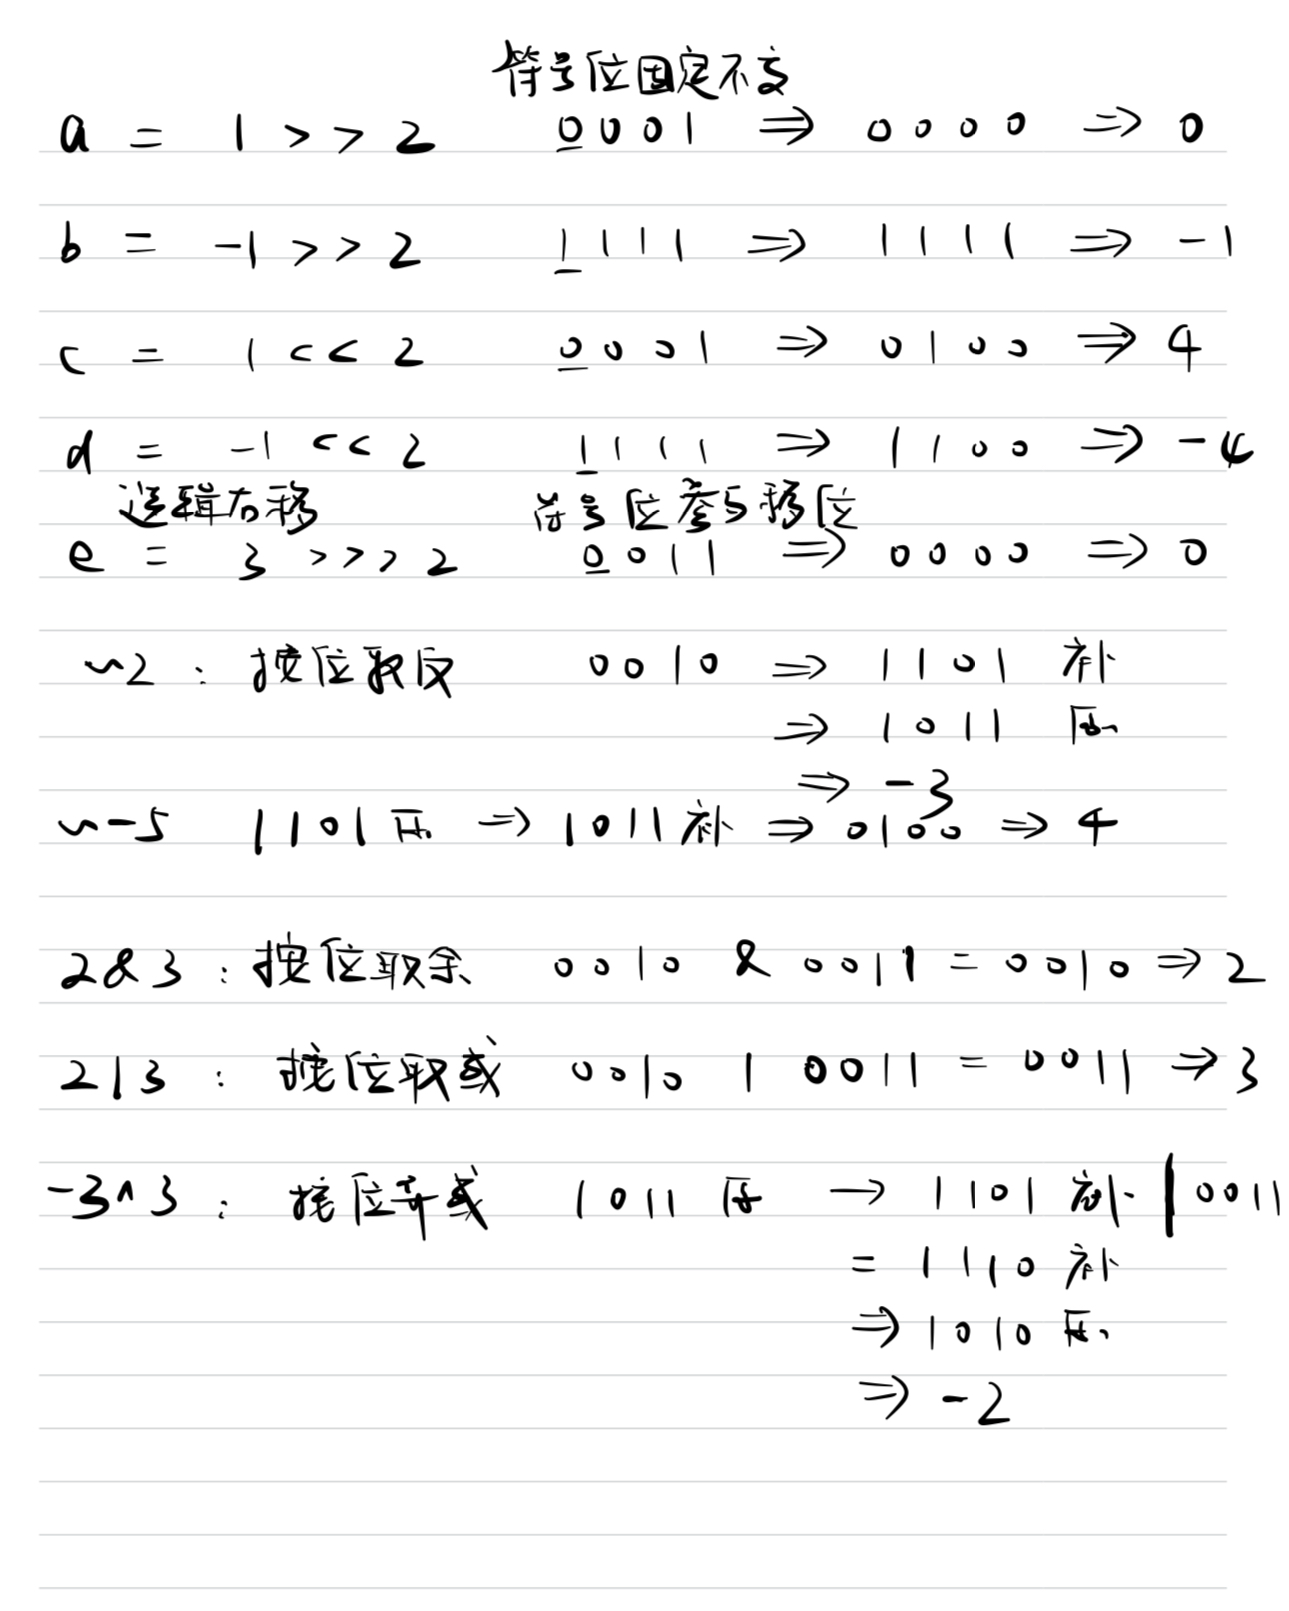 符号位固定不变
a = 1 >> 2 0001 ⇒ 0000 ⇒ 0
b = -1 >> 2 1111 ⇒ 1111 ⇒ -1
c = 1 << 2 0001 ⇒ 0100 ⇒ 4
d = -1 << 2 1111 ⇒ 1100 ⇒ -4
逻辑右移 符号位参与移位
e = 3 >>> 2 0011 ⇒ 0000 ⇒ 0
~2 : 按位取反 0010 ⇒ 1101 补
⇒ 1011 原
⇒ -3
~-5 1101 原 ⇒ 1011 补 ⇒ 0100 ⇒ 4
2&3 : 按位取余 0010 & 0011 = 0010 ⇒ 2
2|3 : 按位取或 0010 | 0011 = 0011 ⇒ 3
-3^3 : 按位异或 1011 原 → 1101 补 | 0011
= 1110 补
⇒ 1010 原
⇒ -2